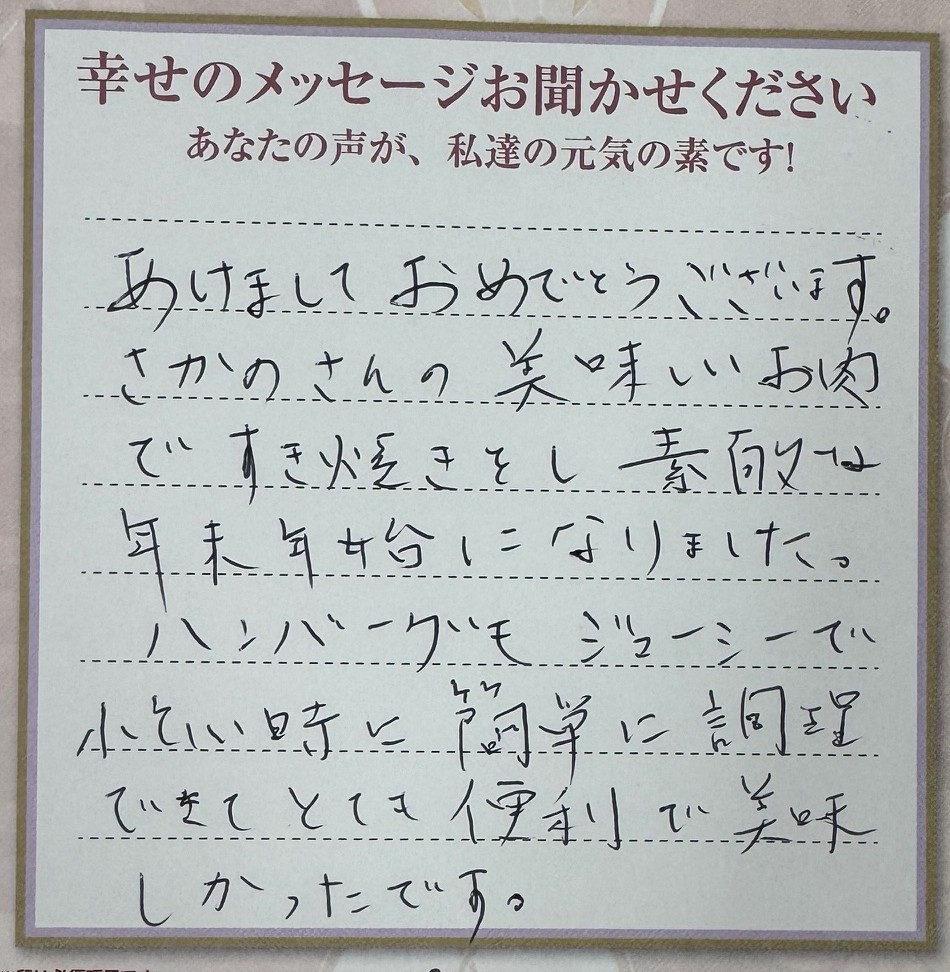 幸せのメッセージお聞かせください
あなたの声が、私達の元気の素です!
あけましておめでとうございます。
さかのさんの美味しいお肉
ですき焼きをし素敵な
年末年始になりました。
ハンバーグもジューシーで
小さい時に簡単に調理
できてとても便利で美味
しかったです。